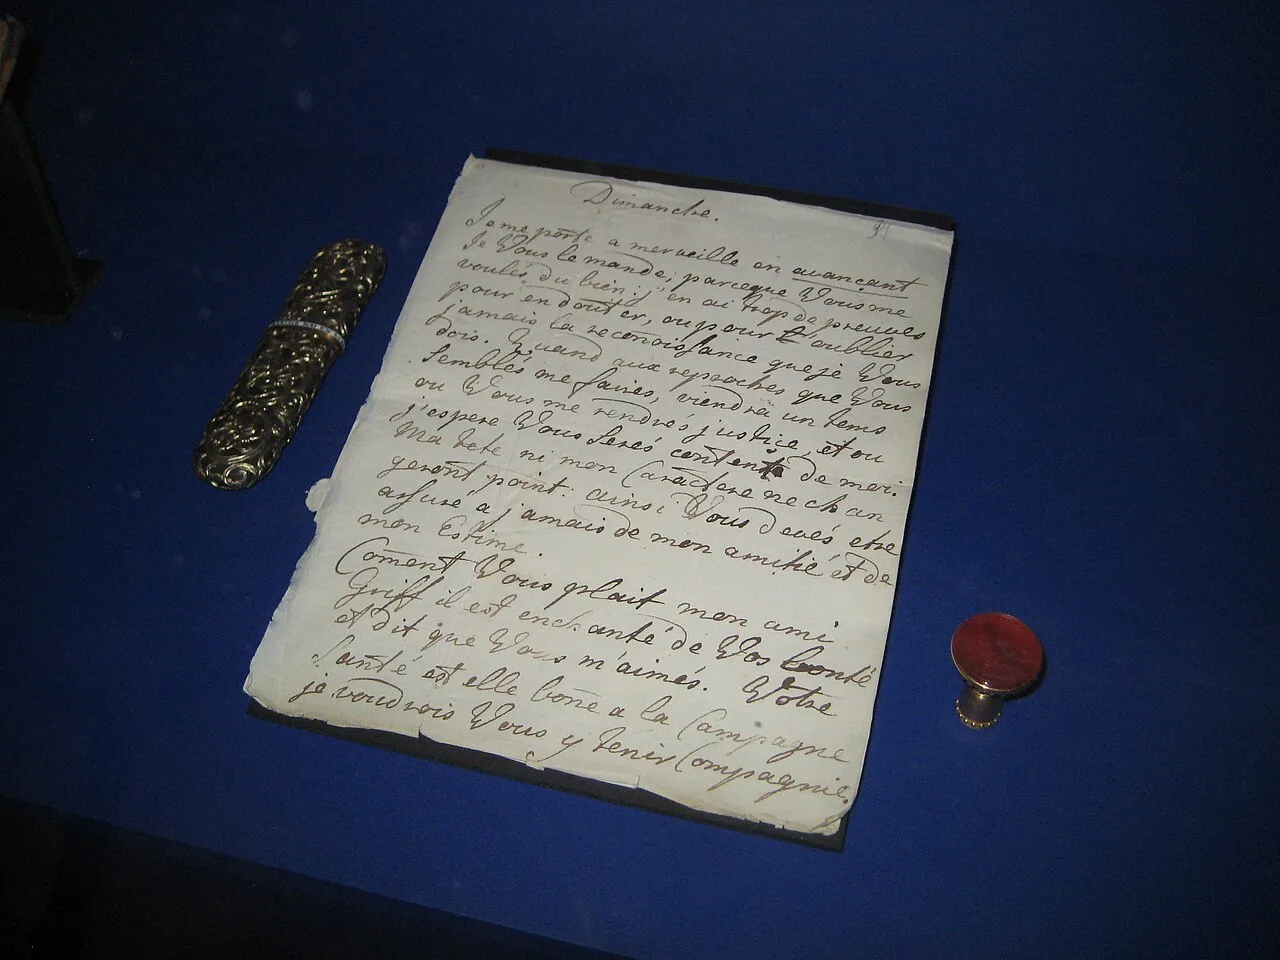 Dimanche.
Je me porte a merveille en avançant
Je Vous le mande, parceque Vous me
voulés du bien; j'en ai trop de preuves
pour en douter, ou pour oublier
jamais la reconoissance que je Vous
dois. Quand aux reproches que Vous
Semblés me faires, viendra un tems
ou Vous me rendrés justice, et ou
j'espere Vous Serés content de moi.
Ma tete ni mon Caractere ne chan
geront point: ainsi Vous devés etre
assuré a jamais de mon amitié et de
mon Estime.
Coment Vous plait mon ami
Griff il est enchanté de Vos bonté
et dit que Vous m'aimés. Votre
Santé est elle bone a la Campagne
je voudrois Vous y tenir Compagnie.